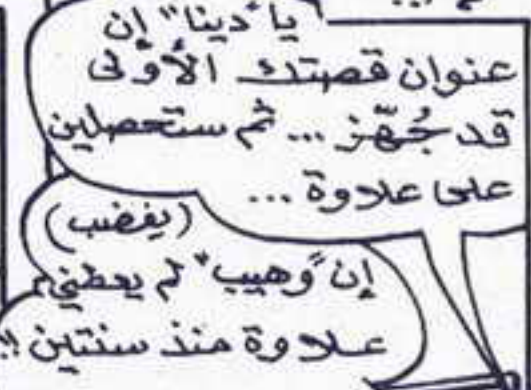 يا "دينا" إن
عنوان قصتك الأولى
قد جُهّز ... ثم ستحصلين
على علاوة ...
(يغضب)
إن "وهيب" لم يعطني
علاوة منذ سنتين !!